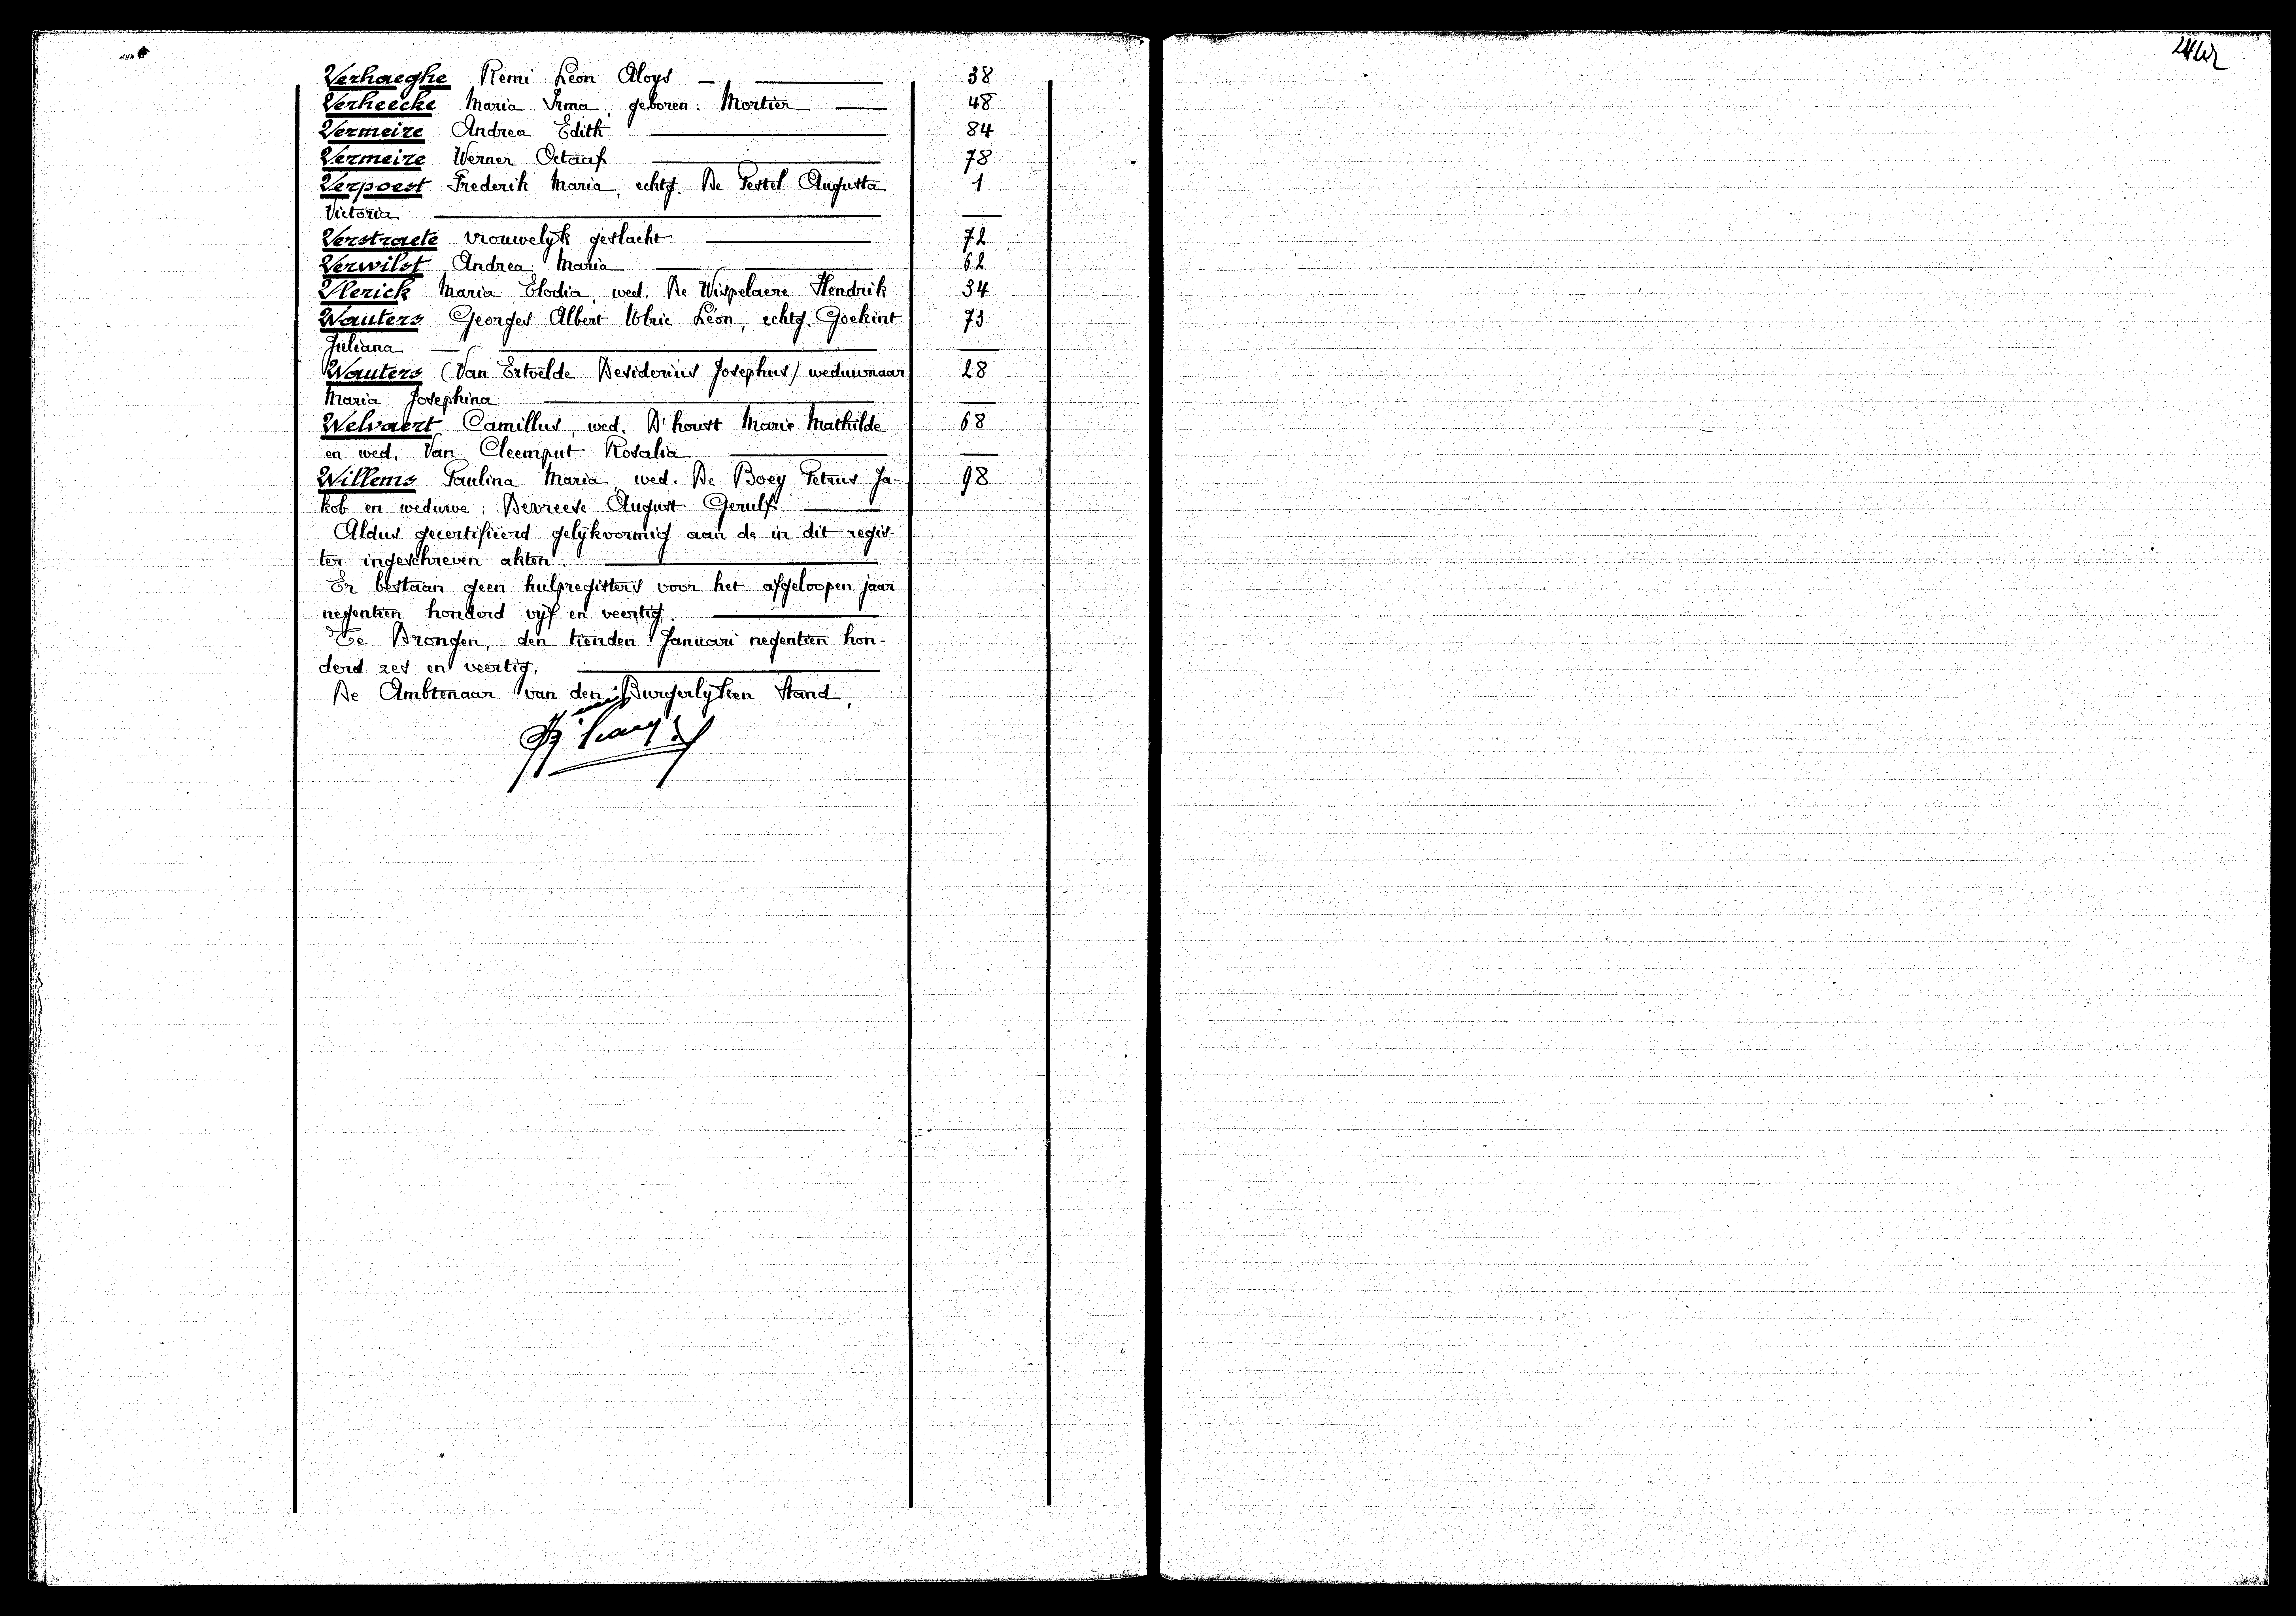 Verhaeghe Remi Léon Aloys — 38
Verheecke Maria Irma, geboren: Mortier — 48
Vermeire Andrea Edith — 84
Vermeire Werner Octaaf — 78
Verpoest Frederik Maria, echtg. De Pestel Augusta 1
Victoria —
Verstraete vrouwelyk geslacht — 72
Verwilst Andrea Maria — 62
Vlerick Maria Elodia, wed. De Wispelaere Hendrik 34
Wauters Georges Albert Ulric Léon, echtg. Goekint 73
Juliana —
Wauters (Van Ertvelde Desiderius Josephus) weduwnaar 28
Maria Josephina —
Welvaert Camillus, wed. D'houst Marie Mathilde 68
en wed. Van Cleemput Rosalia —
Willems Paulina Maria, wed. De Boey Petrus Ja- 98
kob en weduwe: Devreese August Gerulf —
Aldus gecertifieerd gelijkvormig aan de in dit regis-
ter ingeschreven akten. —
Er bestaan geen hulpregisters voor het afgeloopen jaar
negentien honderd vyf en veertig. —
Te Drongen, den tienden Januari negentien hon-
derd zes en veertig. —
De Ambtenaar van den Burgerlyken Stand,